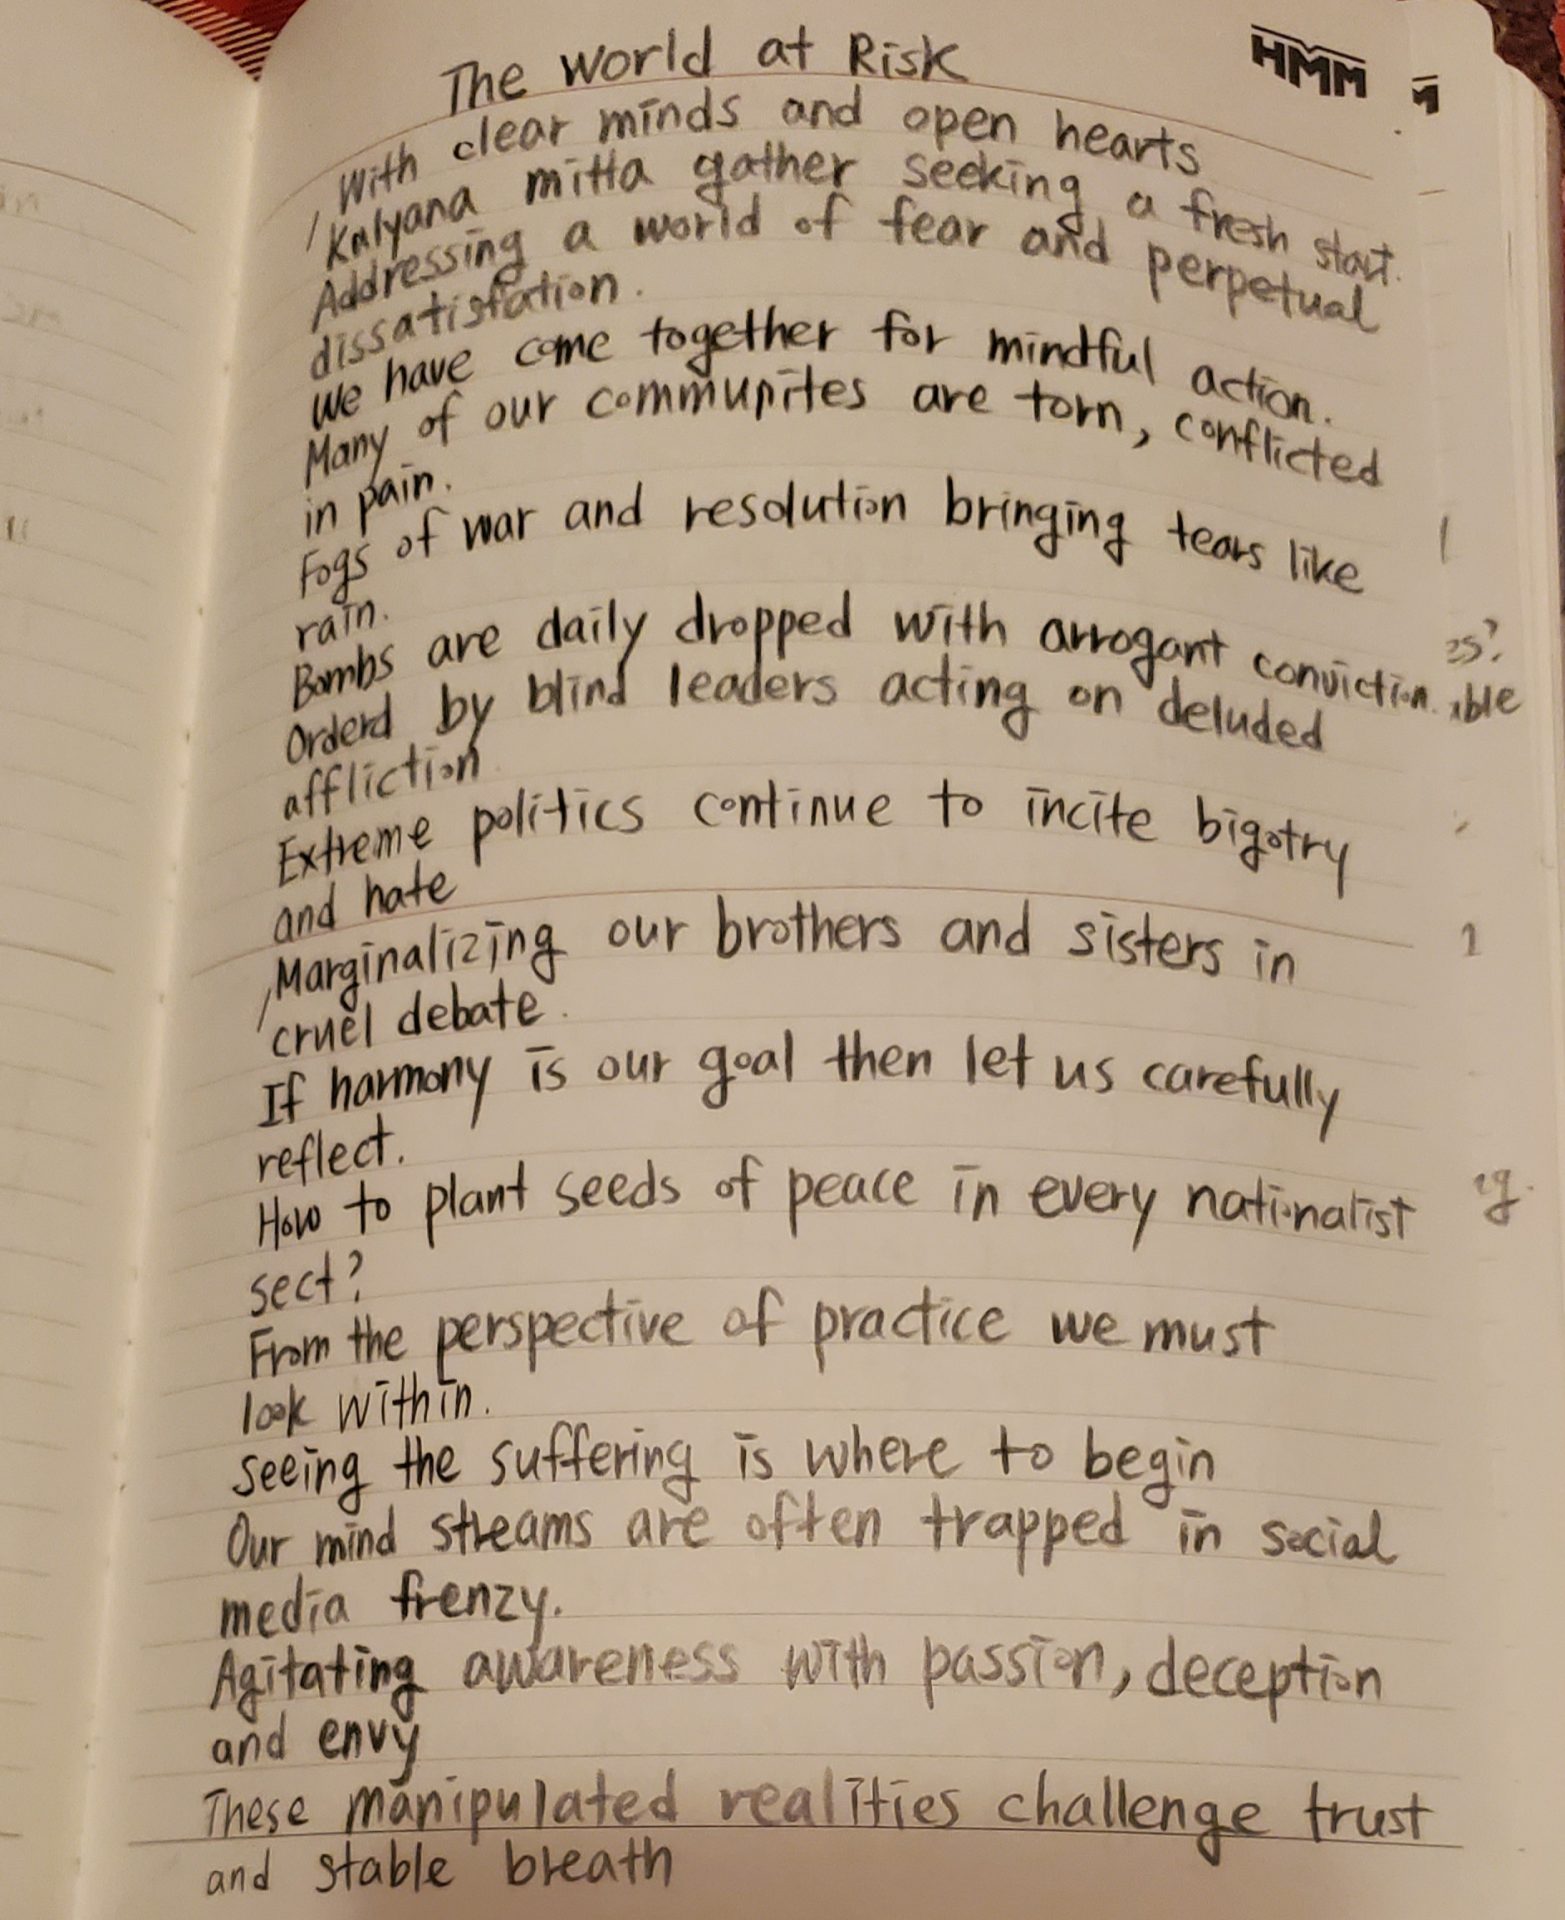 HMM
The World at Risk
With clear minds and open hearts
Kalyana mitta gather seeking a fresh start.
Addressing a world of fear and perpetual
dissatisfation.
We have come together for mindful action.
Many of our communites are torn, conflicted
in pain.
Fogs of war and resolution bringing tears like
rain.
Bombs are daily dropped with arrogant conviction.
Orderd by blind leaders acting on deluded
affliction
Extreme politics continue to incite bigotry
and hate
Marginalizing our brothers and sisters in
cruel debate.
If harmony is our goal then let us carefully
reflect.
How to plant seeds of peace in every nationalist
sect?
From the perspective of practice we must
look within.
Seeing the suffering is where to begin
Our mind streams are often trapped in social
media frenzy.
Agitating awareness with passion, deception
and envy
These manipulated realities challenge trust
and stable breath